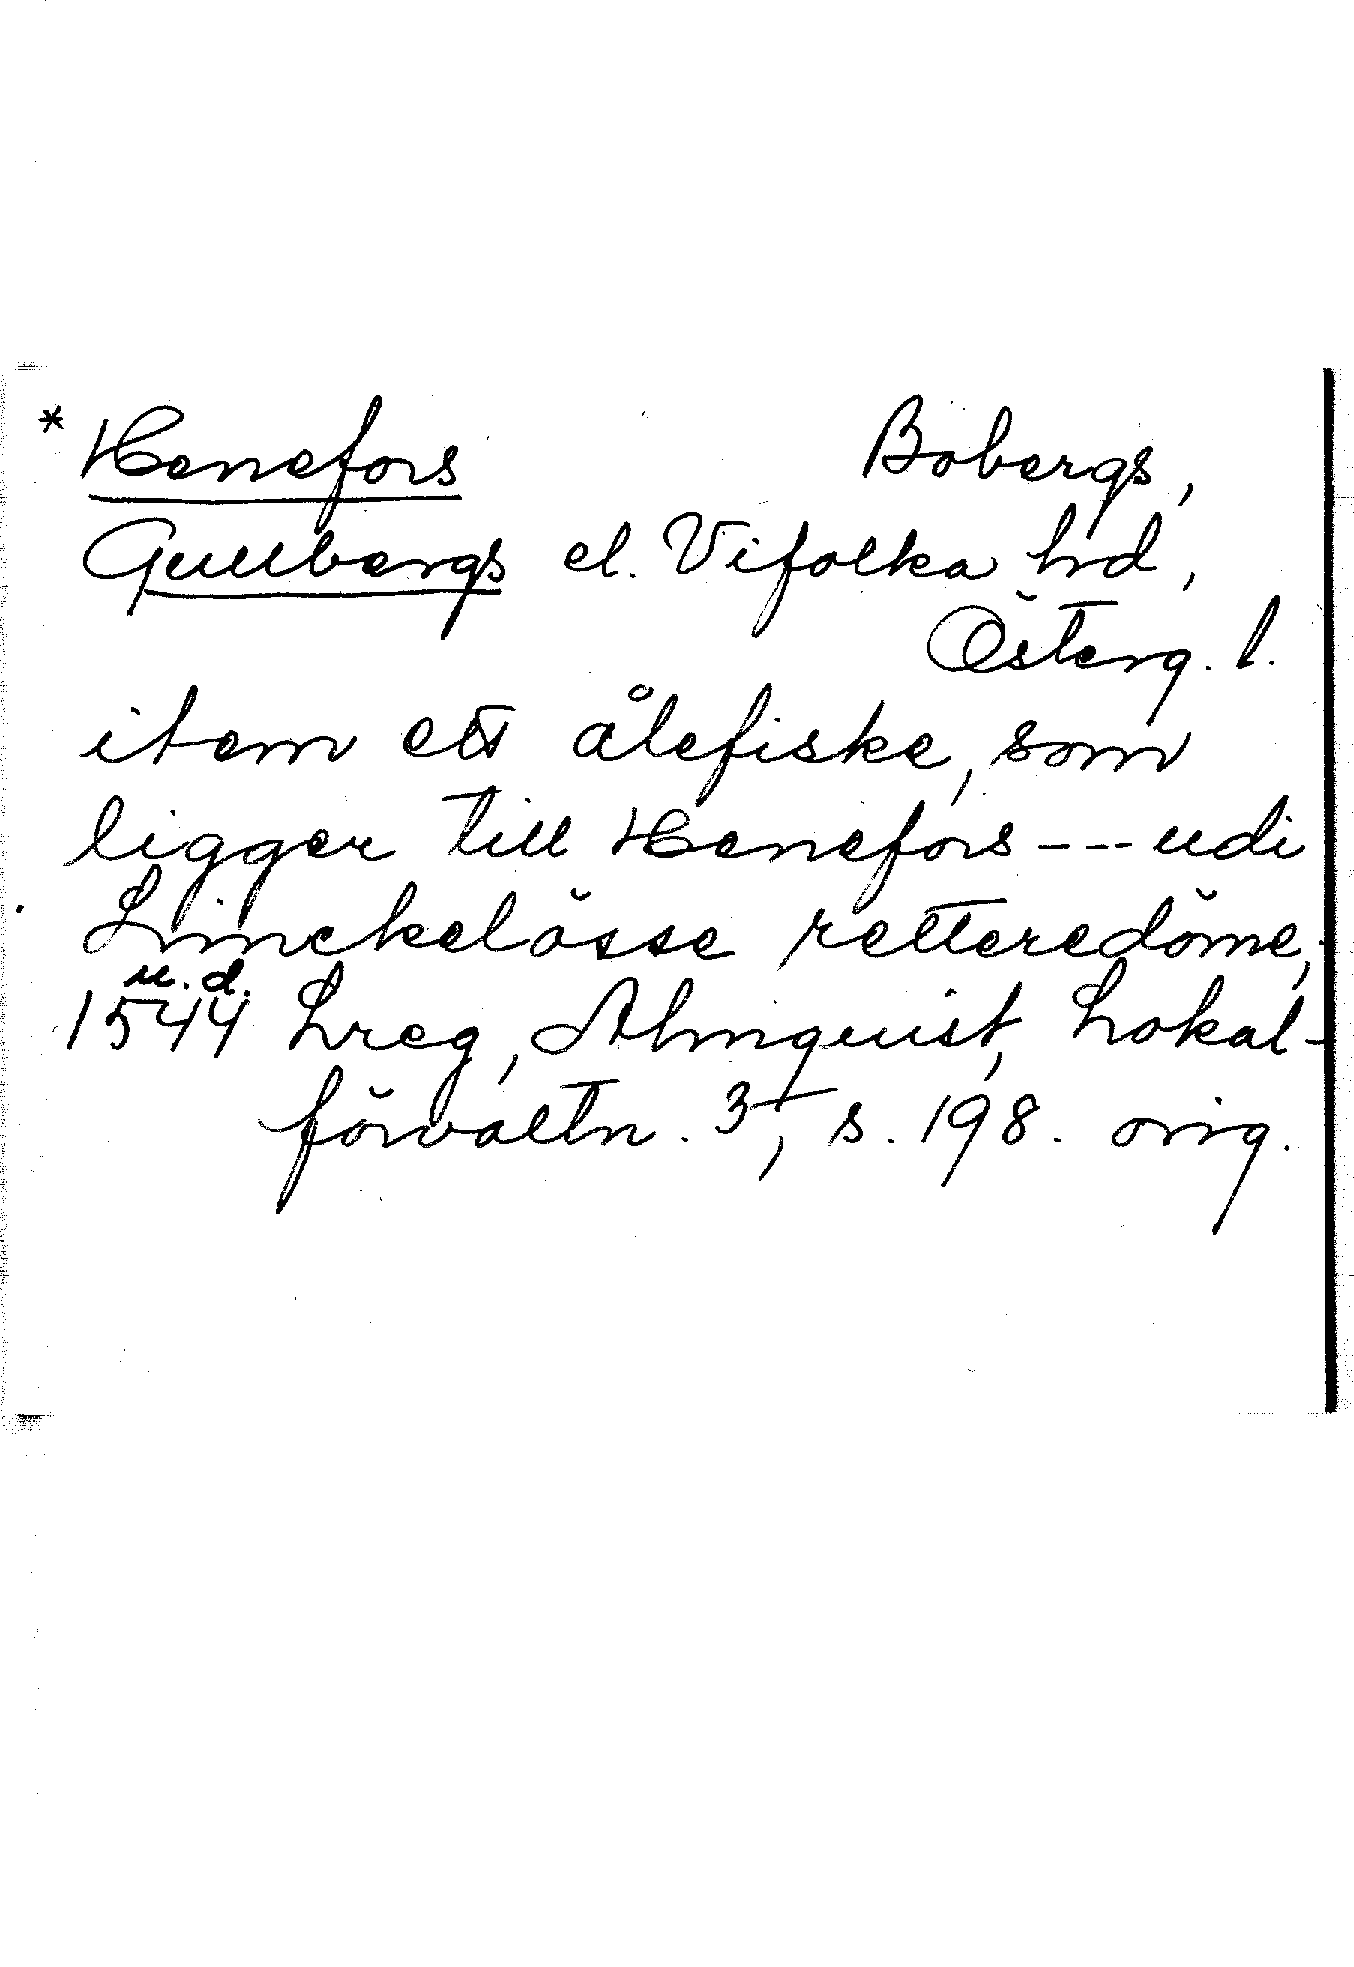 * Henefors Bobergs,
Gullbergs el. Vifolka hrd,
Österg. l.
item ett ålefiske, som
ligger till Henefors --- udi
Linckelösse retteredöme,
u.d.
1544 Lreg, Almquist, Lokal-
förvaltn. 3, s. 198. orig.